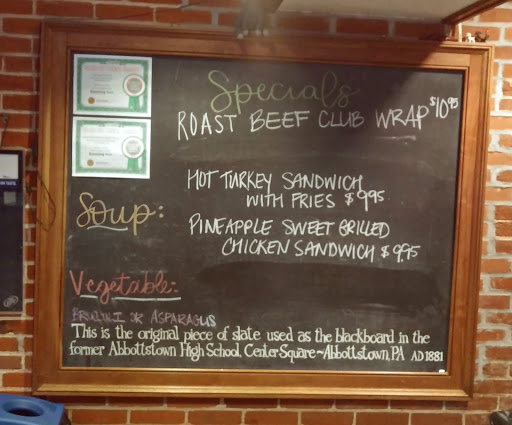 Specials
ROAST BEEF CLUB WRAP $10.95
HOT TURKEY SANDWICH
WITH FRIES $9.95
Soup:
PINEAPPLE SWEET GRILLED
CHICKEN SANDWICH $9.95
Vegetable:
OR ASPARAGUS
This is the original piece of slate used as the blackboard in the
former Abbottstown High School, Center Square~Abbottstown, PA AD 1881